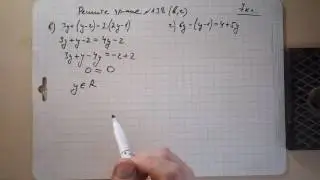 Решите уравн. №138 (в, г)
7кл.
в) 3y+(y-2)=2(2y-1)
3y+y-2=4y-2
3y+y-4y=-2+2
0=0
y∈R
г) 6y-(y-1)=4+5y